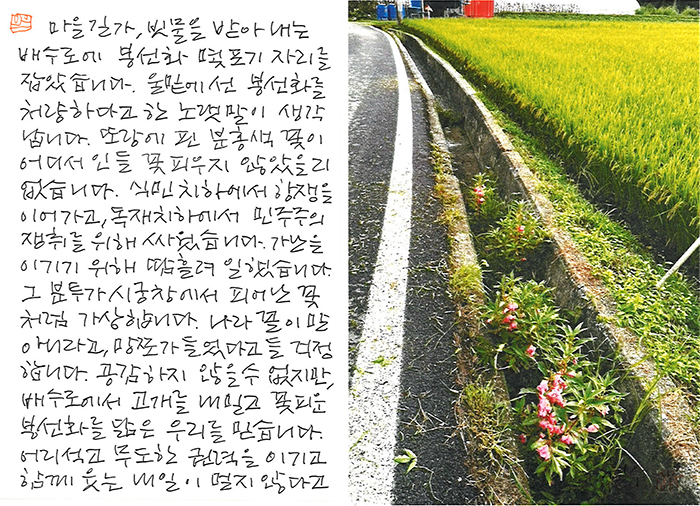 마을길가, 빗물을 받아 내는
배수로에 봉선화 몇포기 자리를
잡았습니다. 울밑에 선 봉선화를
처량하다고 한 노랫말이 생각
납니다. 또랑에 핀 분홍색 꽃이
어디서인들 꽃피우지 않았을리
없습니다. 식민치하에서 항쟁을
이어가고, 독재치하에서 민주주의
쟁취를 위해 싸웠습니다. 가난을
이기기 위해 땀흘려 일했습니다.
그 분투가 시궁창에서 피어난 꽃
처럼 가상합니다. 나라 꼴이 말
아니라고, 망쪼가 들었다고들 걱정
합니다. 공감하지 않을 수 없지만,
배수로에서 고개를 내밀고 꽃피운
봉선화를 닮은 우리를 믿습니다.
어리석고 무도한 권력을 이기고
함께 웃는 내일이 멀지 않다고